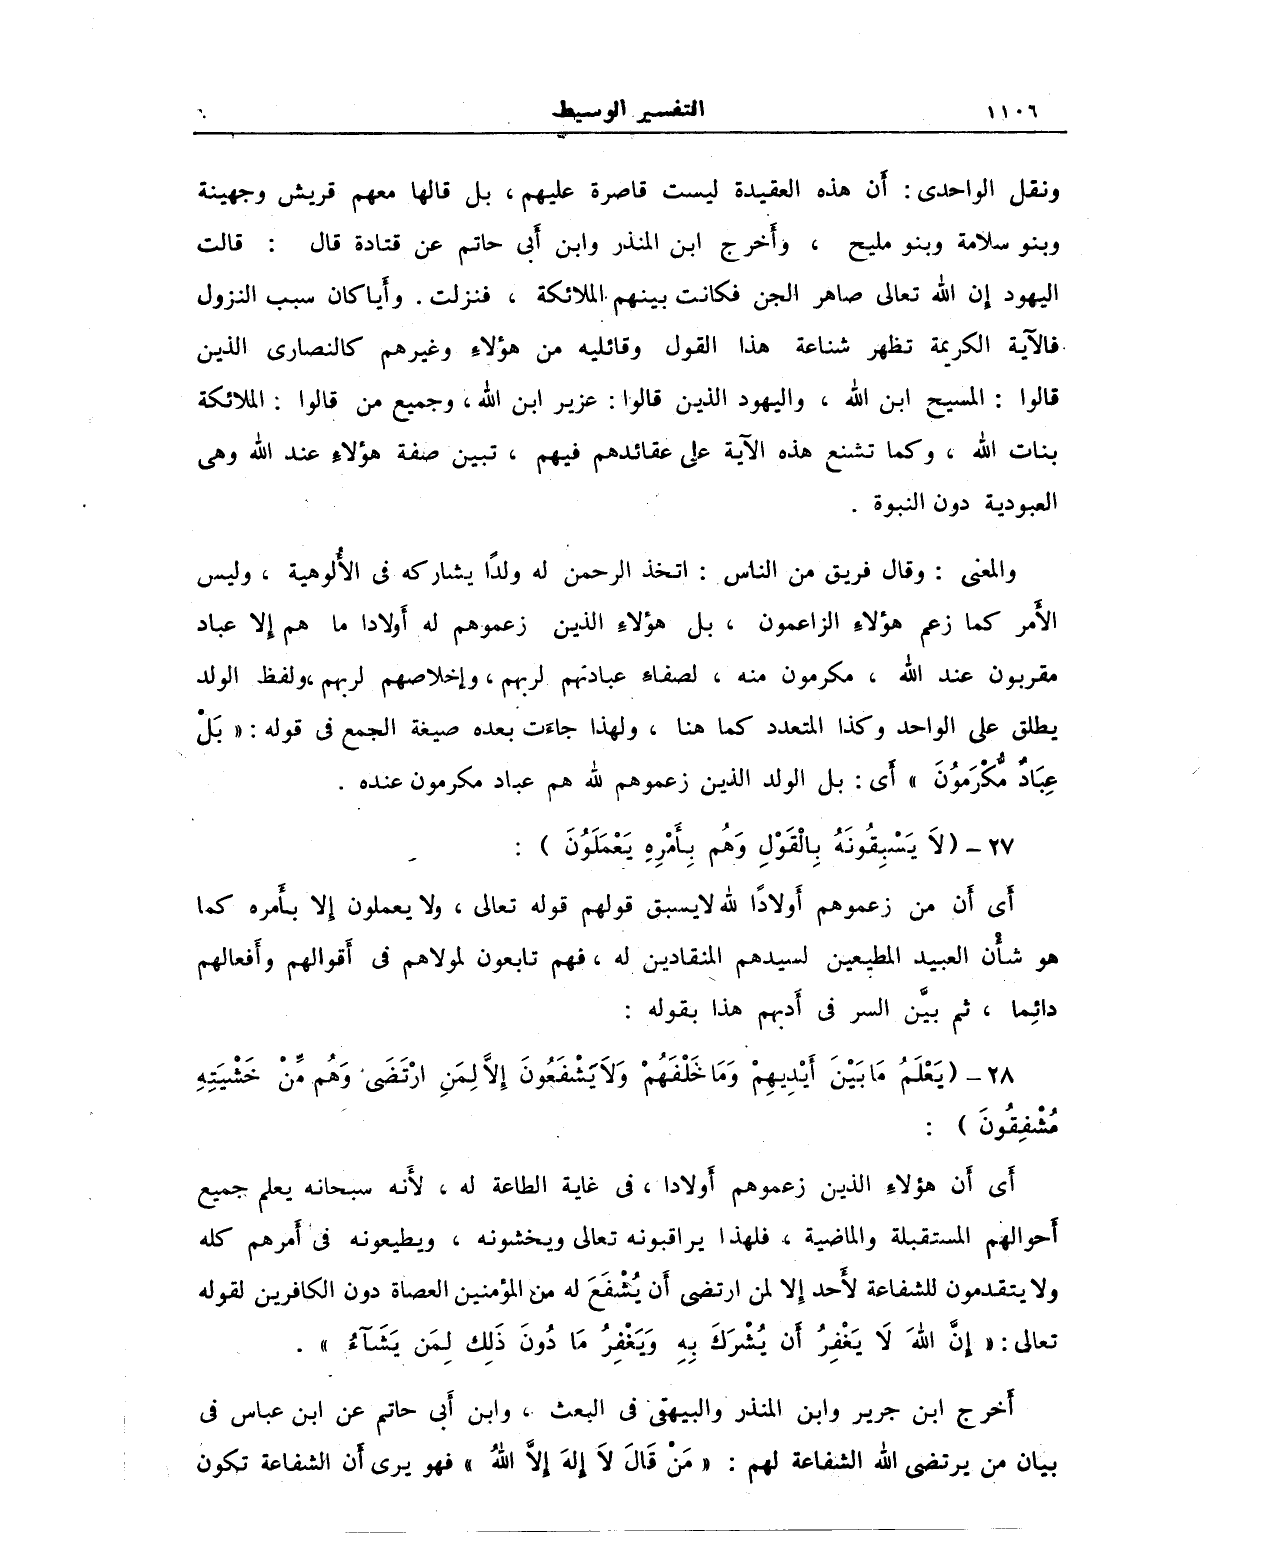 ١١٠٦ التفسير الوسيط
ونقل الواحدى : أَن هذه العقيدة ليست قاصرة عليهم ، بل قالها معهم قريش وجهينة
وبنو سلامة وبنو مليح ، وأَخرج ابن المنذر وابن أَبى حاتم عن قتادة قال : قالت
اليهود إن الله تعالى صاهر الجن فكانت بينهم الملائكة ، فنزلت . وأَياكان سبب النزول
فالآية الكريمة تظهر شناعة هذا القول وقائليه من هؤلاءِ وغيرهم كالنصارى الذين
قالوا : المسيح ابن الله ، واليهود الذين قالوا : عزير ابن الله ، وجميع من قالوا : الملائكة
بنات الله ، وكما تشنع هذه الآية على عقائدهم فيهم ، تبين صفة هؤلاءِ عند الله وهى
العبودية دون النبوة .
والمعنى : وقال فريق من الناس : اتخذ الرحمن له ولدًا يشاركه فى الأُلوهية ، وليس
الأَمر كما زعم هؤلاءِ الزاعمون ، بل هؤلاءِ الذين زعموهم له أَولادا ما هم إلا عباد
مقربون عند الله ، مكرمون منه ، لصفاءِ عبادتهم لربهم ، وإخلاصهم لربهم ،ولفظ الولد
يطلق على الواحد وكذا المتعدد كما هنا ، ولهذا جاءَت بعده صيغة الجمع فى قوله : « بَلْ
عِبَادٌ مُّكْرَمُونَ » أَى : بل الولد الذين زعموهم لله هم عباد مكرمون عنده .
٢٧ – ( لاَ يَسْبِقُونَهُ بِالْقَوْلِ وَهُم بِأَمْرِهِ يَعْمَلُونَ ) :
أَى أَن من زعموهم أَولادًا لله لايسبق قولهم قوله تعالى ، ولا يعملون إلا بأَمره كما
هو شأْن العبيد المطيعين لسيدهم المنقادين له ، فهم تابعون لمولاهم فى أَقوالهم وأَفعالهم
دائِما ، ثم بيَّن السر فى أَدبهم هذا بقوله :
٢٨ – ( يَعْلَمُ مَا بَيْنَ أَيْدِيهِمْ وَمَا خَلْفَهُمْ وَلاَ يَشْفَعُونَ إِلاَّ لِمَنِ ارْتَضَى وَهُم مِّنْ خَشْيَتِهِ
مُشْفِقُونَ ) :
أَى أَن هؤلاءِ الذين زعموهم أَولادا ، فى غاية الطاعة له ، لأَنه سبحانه يعلم جميع
أَحوالهم المستقبلة والماضية ، فلهذا يراقبونه تعالى ويخشونه ، ويطيعونه فى أَمرهم كله
ولا يتقدمون للشفاعة لأَحد إلا لمن ارتضى أَن يُشْفَعَ له من المؤمنين العصاة دون الكافرين لقوله
تعالى : « إِنَّ اللهَ لَا يَغْفِرُ أَن يُشْرَكَ بِهِ وَيَغْفِرُ مَا دُونَ ذَلِكَ لِمَن يَشَآءُ » .
أَخرج ابن جرير وابن المنذر والبيهقى فى البعث ، وابن أَبى حاتم عن ابن عباس فى
بيان من يرتضى الله الشفاعة لهم : « مَنْ قَالَ لاَ إِلهَ إِلاَّ اللهُ » فهو يرى أَن الشفاعة تكون